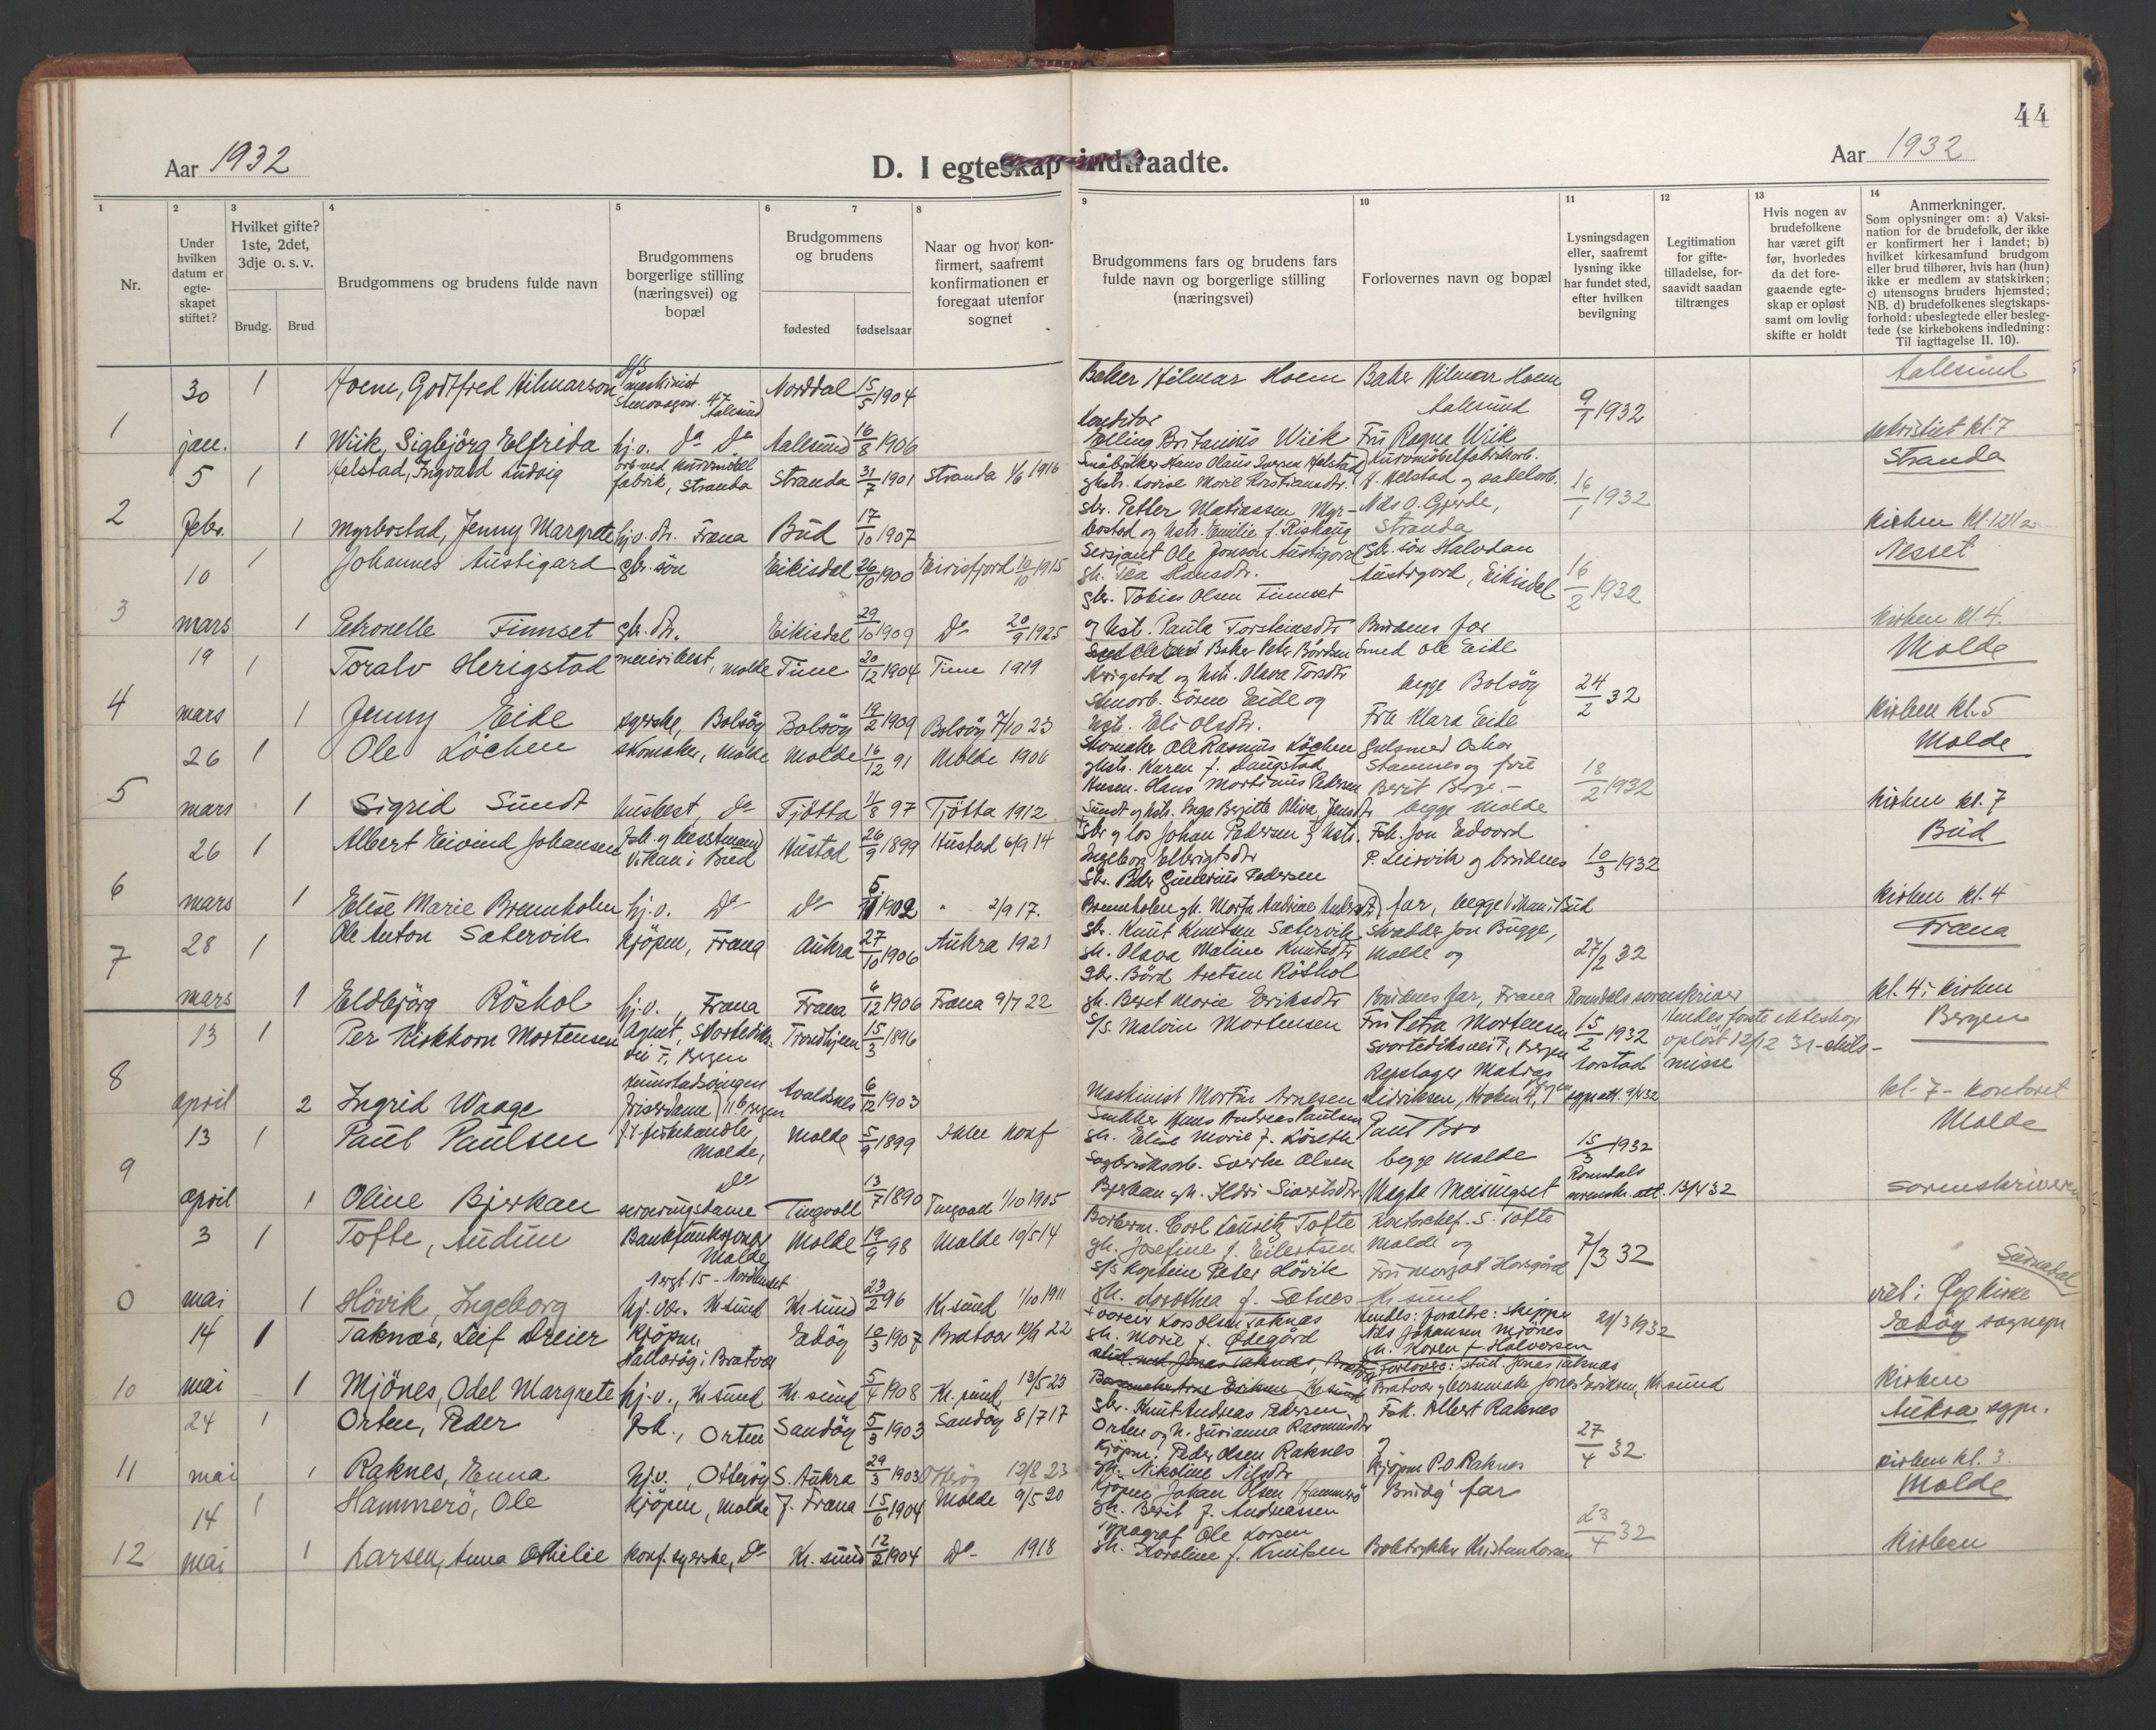 44
Aar 1932
D. I egteskap indtraadte.
Aar 1932
1 2 3 4 5 6 7 8 9 10 11 12 13 14
Nr.
Under hvilken datum er egte-
skapet stiftet?
Hvilket gifte?
1ste, 2det,
3dje o. s. v.
Brudg. Brud
Brudgommens og brudens fulde navn
Brudgommens
borgerlige stilling
(næringsvei) og
bopæl
Brudgommens
og brudens
fødested fødselsaar
Naar og hvor kon-
firmert, saafremt
konfirmationen er
foregaat utenfor
sognet
Brudgommens fars og brudens fars
fulde navn og borgerlige stilling
(næringsvei)
Forlovernes navn og bopæl
Lysningsdagen
eller, saafremt
lysning ikke
har fundet sted,
efter hvilken
bevilgning
Legitimation
for gifte-
tilladelse, for-
saavidt saadan
tiltrænges
Hvis nogen av
brudefolkene
har været gift
før, hvorledes
da det fore-
gaaende egte-
skap er opløst
samt om lovlig
skifte er holdt
Anmerkninger.
Som oplysninger om: a) Vaksi-
nation for de brudefolk, der ikke
er konfirmert her i landet; b)
hvilket kirkesamfund brudgom
eller brud tilhører, hvis han (hun)
ikke er medlem av statskirken;
c) utensogns bruders hjemsted;
NB. d) brudefolkenes slegtskaps-
forhold: ubeslegtede eller besleg-
tede (se kirkebokens indledning:
Til iagttagelse II. 10).
30 1 Hoem, Godtfred Hilmarson D/S maskinist 47 Aalesund Norddal 15/5 1904 Baker Hilmar Hoem Baker Hilmar Hoem Aalesund 9/1 1932 Aalesund
1 jan. 1 Wiik, Sigbjörg Elfrida hj.v. do do Aalesund 16/8 1906 Konditor Elling Britanius Wiik Fru Ragna Wiik sakristiet kl. 7
5 1 Helstad, Ingvald Ludvig arb. ved kurvmöbel fabrik, Stranda Stranda 31/7 1901 Stranda 1/6 1916 Småbruker Hans Olaus Iversen Helstad Kurvmöbelfabrikarb. Helstad og sadelarb. 16/1 1932 Stranda
2 febr. 1 Myrbostad, Jenny Margrete hj.v. dr. Fræna Bud 17/10 1907 gbr. Petter Matiassen Myrbostad og hstr. Emilie f. Riskaug Nils O. Gjerde, Stranda kirken kl. 12 1/2
10 1 Johannes Austigard gbr. sön Eikisdal 26/10 1900 Eirisfjord 10/10 1915 Sersjant Ole Jonson Austigard gh. Tea Hansdtr. gbr. sön Halvdan Austigard, Eikisdal 16/2 1932 Nesset
3 mars 1 Petronelle Finnset gbr. dtr. Eikisdal 29/10 1909 do 20/9 1925 gbr. Tobias Olsen Finnset og hst. Paula Torsteinsdtr Brudens far kirken kl. 4.
19 1 Toralv Herigstad meieribest, Molde Time 20/12 1904 Time 1919 Baker Peter Bårdsen Herigstad og hstr. Olava Torsdtr Smed Ole Eide begge Bolsöy 24/2 32 Molde
4 mars 1 Jenny Eide syerske, Bolsöy Bolsöy 19/2 1909 Bolsöy 7/10 23 Stenarb. Sören Eide og hstr. Eli Olsdtr. Frk Klara Eide kirken kl. 5
26 1 Ole Löchen skomaker, Molde Molde 16/12 91 Molde 1906 Skomaker Ole Rasmus Löchen ghstr. Karen f. Langstad Gulsmed Oskar Stamnes og frue 18/2 1932 Molde
5 mars 1 Sigrid Sundt husbest, do Tjötta 11/8 97 Tjötta 1912 Hans Mortinus Pedersen Sundt og hstr. Inga Bergitte Oliva Jensdtr Berit Berge begge Molde kirken kl. 7
26 1 Albert Eivind Johansen Fsk. og besstmand Vikan i Bud Hustad 26/9 1899 Hustad 6/9 14 gbr. og los Johan Pedersen og hstr. Ingeborg Elbrigtsdtr Fsk. Jon Edvard P. Leirvik og brudens 10/3 1932 Bud
6 mars 1 Elise Marie Bremholm hj.v. do do 5/11 1902 " 2/9 17. gbr. Peder Gunerius Pedersen Bremholm gh. Marta Andrine Andersdtr far, begge Vikan i Bud kirken kl. 4
28 1 Ole Anton Sætervik kjöpm, Fræna Aukra 27/10 1906 Aukra 1921 gbr. Knut Knutsen Sætervik gh. Olava Maline Knutsdtr skredder Jon Bugge, Molde og 27/2 32 Fræna
7 mars 1 Eldbjörg Röshol hj.v., Fræna Fræna 6/12 1906 Fræna 9/7 22 gbr. Bård Aretsen Röshol gh. Beret Marie Eriksdtr Brudens far, Fræna kl. 4 i kirken
13 1 Per Kirkhorn Mortensen Agent, Svartediksvei 7, Bergen Trondhjem 15/3 1896 S/S. Malvin Mortensen Fru Petra Mortensen Svartediksvei 7, Bergen 15/2 1932 Romsdals sorenskriver Hendes förste ekteskap oplöst 12/12 31 - skilsmisse Bergen
8 april 2 Ingrid Waage Frisördame, Bergen Avaldsnes 6/12 1903 Maskinist Martin Arnesen Repslager Matias Didriksen, Kroken 4, Bergen kl. 7 - kontoret
13 1 Paul Paulsen fiskehandler, Molde, Molde 5/9 1899 ikke konf Snekker Hans Andreas Paulsen gh. Elise Marie f. Löseth Paul Bro begge Molde 15/3 1932 Molde
9 april 1 Oline Bjerkan do serveringsdame Tingvoll 13/7 1890 Tingvoll 1/10 1905 Sagbruksarb. Sverke Olsen Bjerkan gh. Ildri Sivertsdtr Magda Meisingset Romsdals sorenskr. att. 13/4 32 sorenskriveren
3 1 Tofte, Audun Bankfunksjonær Molde Molde 19/9 98 Molde 10/5 14 Carl Lauritz Tofte gh. Josefine f. Eilertsen Kontorchef. S. Tofte Molde og 7/3 32 Surnadal
0 mai 1 Hövik, Ingeborg hj.v. Kr.sund Kr.sund 23/2 96 Kr.sund 1/10 1911 S/S Kaptein Peter Hövik gh. Dorothea f. Sætnes Fru Margot Horsgård Kr.sund viet i Öye kirke
14 1 Taknæs, Leif Dreier Kjöpm, Hallaröy i Bratvær Edöy 10/3 1907 Bratvær 10/9 22 Lars Olsen Taknæs gh. Marie f. Ödegård Hendes foreldre: skipper Nils Johansen Mjönes h. Karen f. Halvorsen 21/3 1932 Edöy sognepr
10 mai 1 Mjönes, Odel Margrete hj.v., Kr.sund Kr.sund 5/4 1908 Kr.sund 13/5 23 Forlovere: stud. Jonas Taknæs Bratvær og börsemaker Jonas Eriksen, Kr.sund Kirken
24 1 Orten, Peder fsk., Orten Sandöy 5/3 1903 Sandöy 8/7 17 gbr. Knut Andreas Pedersen Orten og h. Gurianna Rasmusdtr Fsk. Albert Raknes og 27/4 32. Aukra sgpr.
11 mai 1 Raknes, Enna hj.v., Otteröy S. Aukra 29/3 1903 Otteröy 12/8 23 Kjöpm. Peder Olsen Raknes gh. Nikoline Nilsdtr kjöpm P.O. Raknes kirken kl. 3.
14 1 Hammerö, Ole Kjöpm, Molde f. Fræna 15/6 1904 Molde 9/5 20 Kjöpm Johan Olsen Hammerö gh. Berit f. Andreassen Brudg' far 23/4 32 Molde
12 mai 1 Larsen, Anna Othilie konf. syerske, do Kr.sund 12/2 1904 do 1918 Typograf Ole Larsen gh. Karoline f. Knutsen Boktrykker Kristian Larsen Kirken